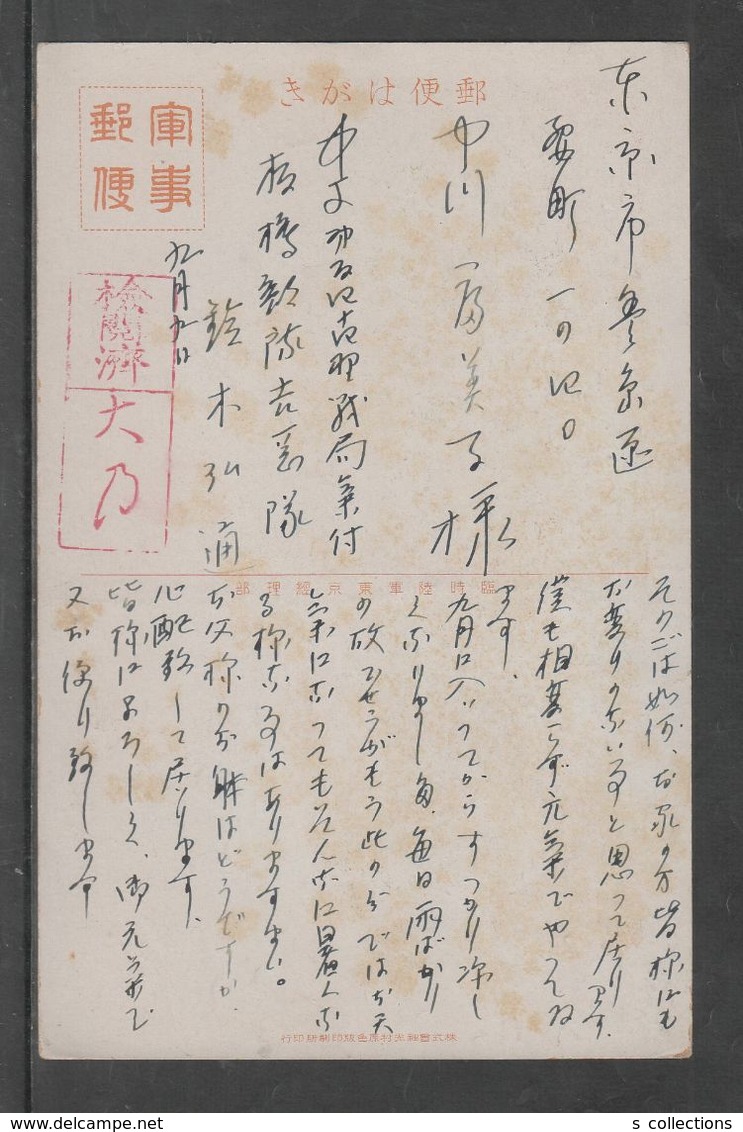 郵便はがき
軍事郵便
東京市豊島区
要町一の四〇
中川富美子様
板橋部隊吉富隊
鈴木弘通
九月九日
検閲済
大乃
臨時陸軍東京經理部
その后は如何、お家の方皆様にも
お変りのない事と思って居ります。
僕も相変らず元気でやってゐ
ます。
九月に入ってからすっかり涼し
くなりました。毎日雨ばかり
の故でせうがもう此の分ではお天
気になってもそんなに暑くな
る様な事はありますまい。
お父様のお躰はどうですか
心配致して居ります、
皆様によろしく、御元気で
又お便り致します
株式會社光村原色版印刷所印行
s collections